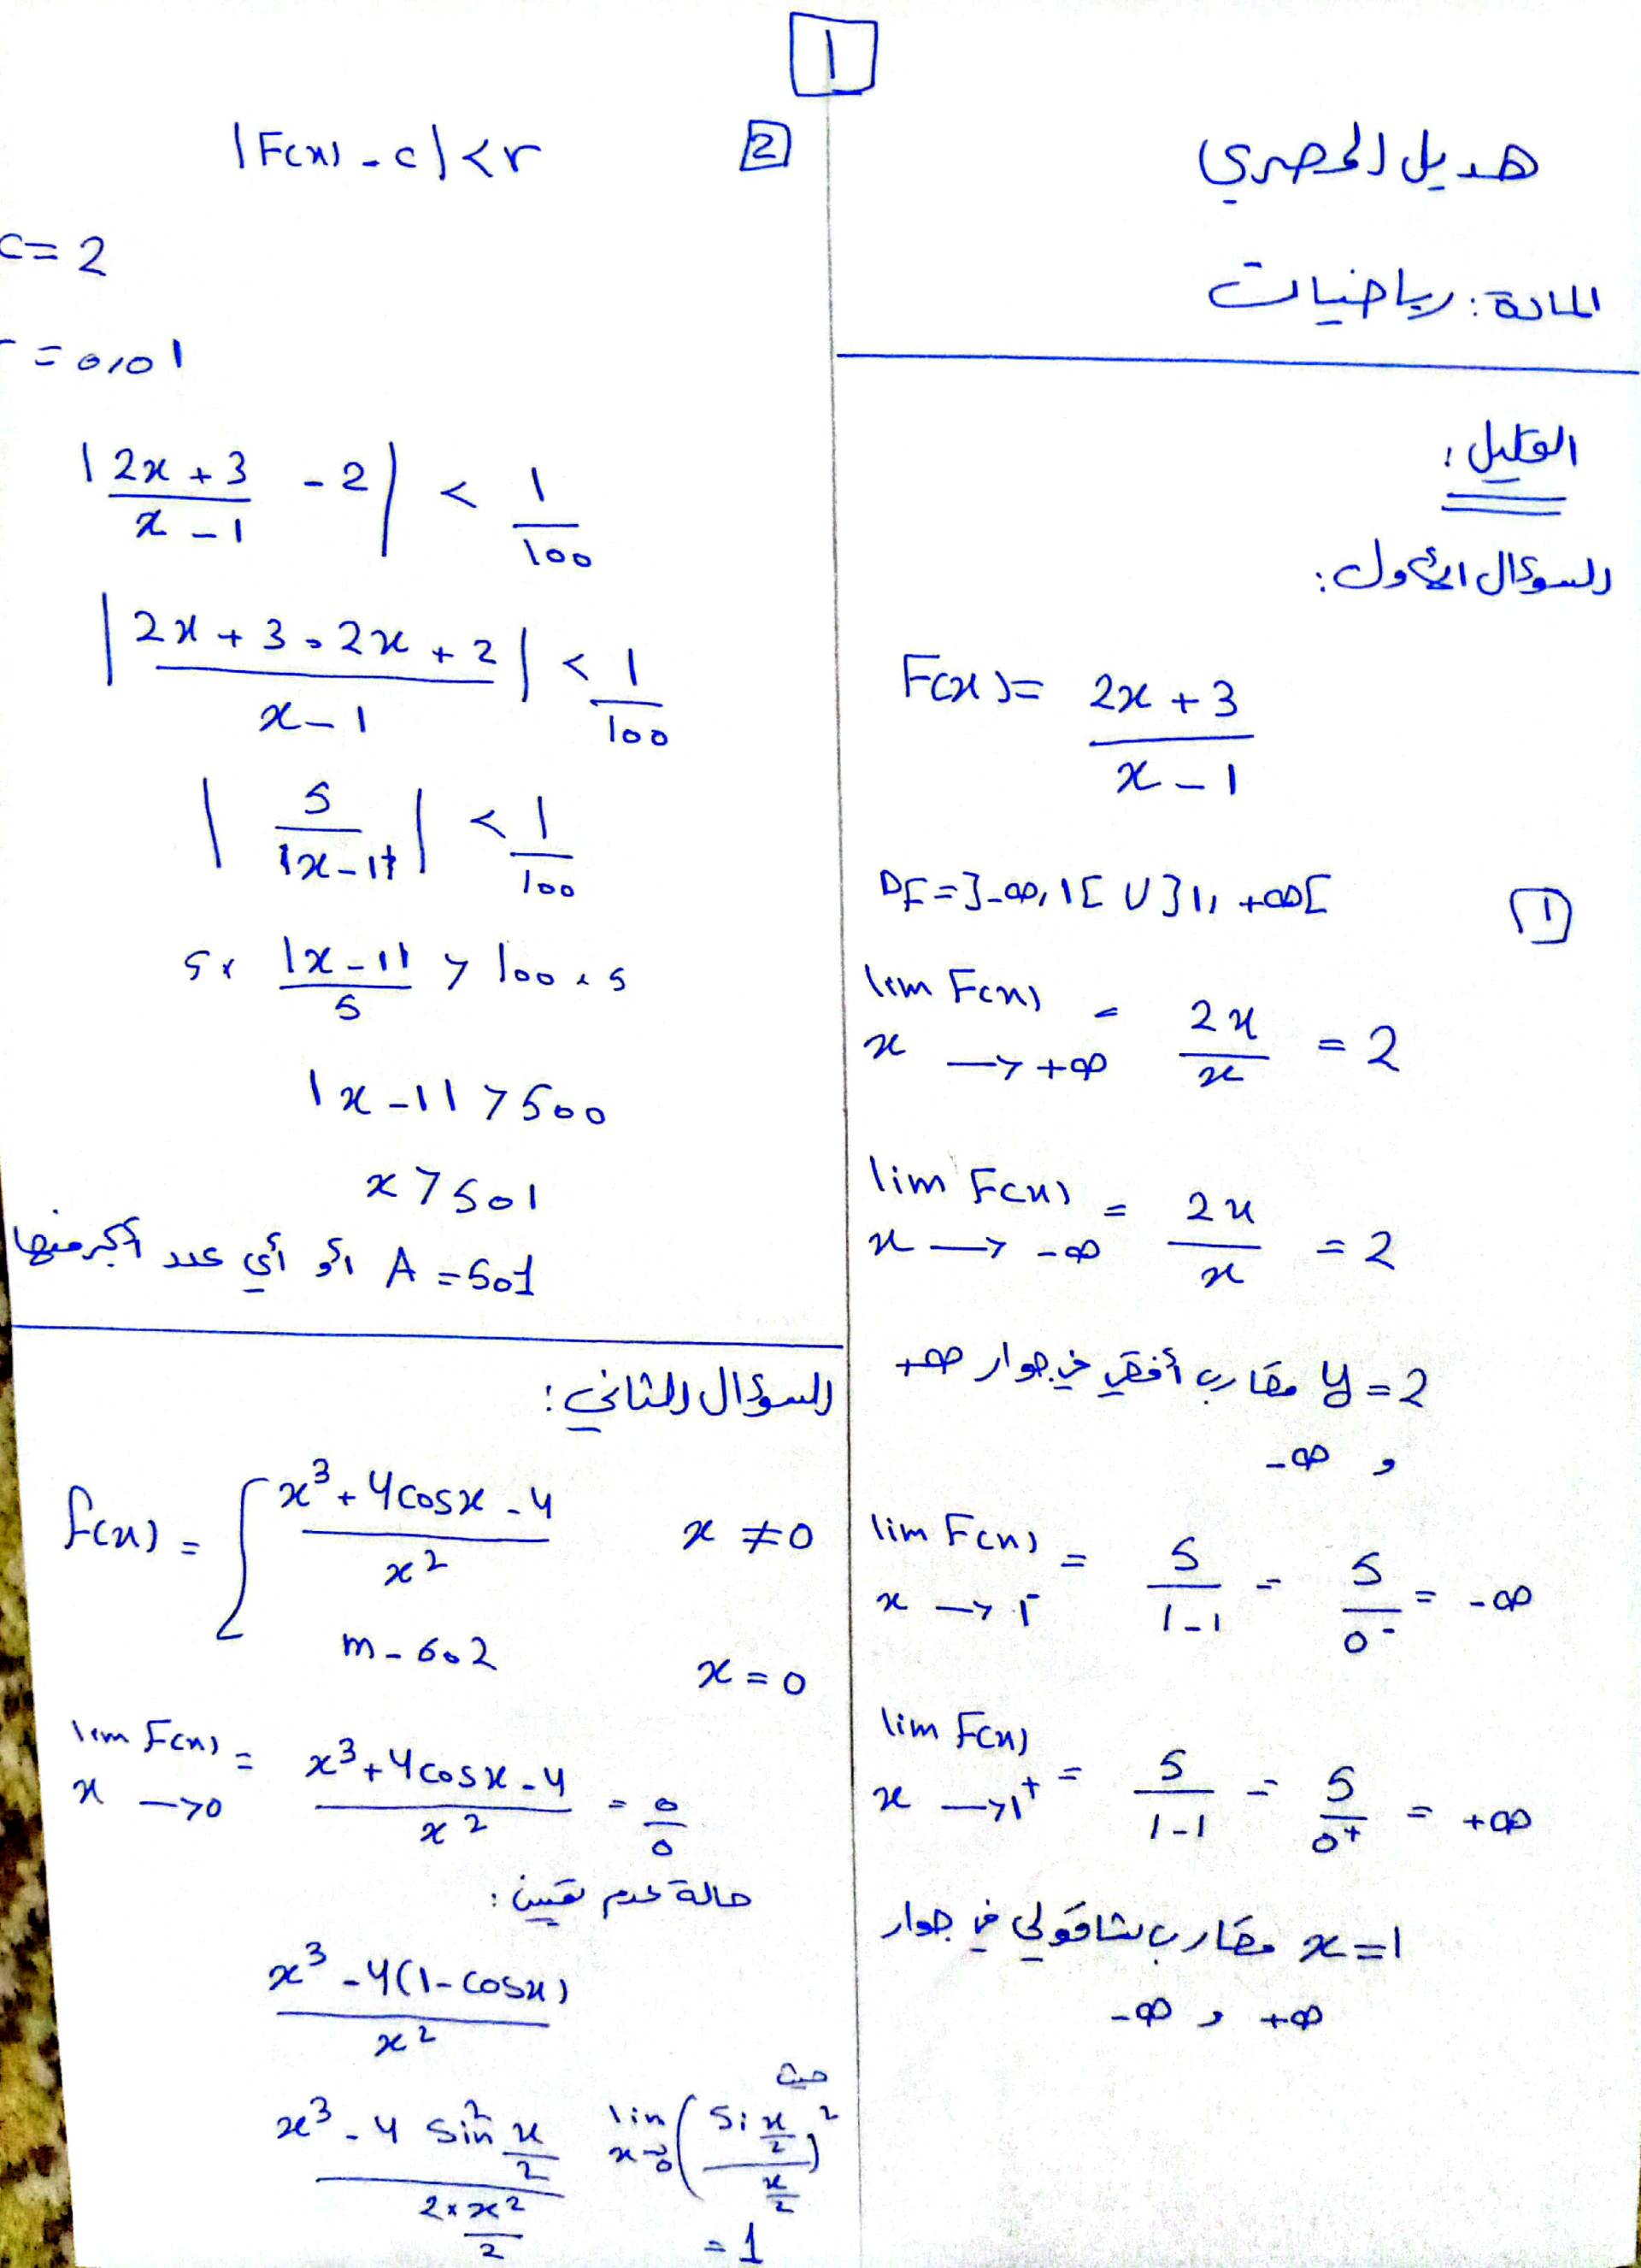 1
هديل المصري
المادة: رياضيات
التحليل:
السؤال الأول:
F(x) = (2x + 3)/(x - 1)
1
DF = ]-∞, 1[ U ]1, +∞[
lim F(x) x → +∞ = 2x/x = 2
lim F(x) x → -∞ = 2x/x = 2
y = 2 مقارب أفقي في جوار +∞
و -∞
lim F(x) x → 1⁻ = 5/(1-1) = 5/0⁻ = -∞
lim F(x) x → 1⁺ = 5/(1-1) = 5/0⁺ = +∞
x = 1 مقارب شاقولي في جوار
+∞ و -∞
2
|F(x) - c| < r
c = 2
= 0,01
|(2x + 3)/(x - 1) - 2| < 1/100
|(2x + 3 - 2x + 2)/(x - 1)| < 1/100
|5/|x - 1|| < 1/100
5 × |x - 1|/5 > 100 × 5
|x - 1| > 500
x > 501
A = 501 أو أي عدد أكبر منها
السؤال الثاني:
f(x) = { (x³ + 4cosx - 4)/x² x ≠ 0
m - 602 x = 0
lim F(x) x → 0 = (x³ + 4cosx - 4)/x² = 0/0
حالة عدم تعيين:
(x³ - 4(1 - cosx))/x²
حيث
(x³ - 4 sin² x/2)/(2 × x²/2) lim x→0 (Si x/2 / x/2)²
= 1